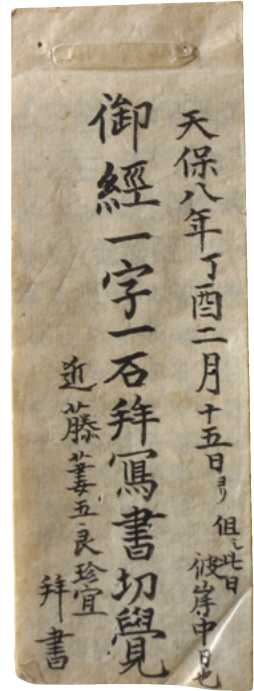 天保八年丁酉二月十五日ヨリ 但シ此日彼岸中日也
御經一字一石拜寫書切覺
近藤華五良珍宜
拜書